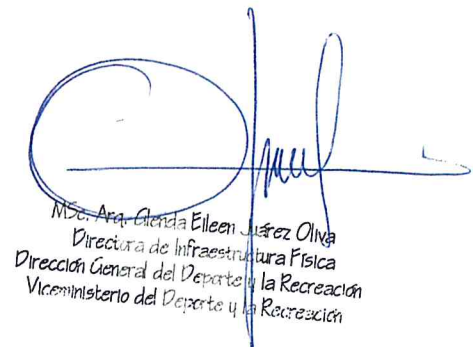 MSc. Arq. Glenda Eileen Juárez Oliva
Directora de Infraestructura Física
Dirección General del Deporte y la Recreación
Viceministerio del Deporte y la Recreación